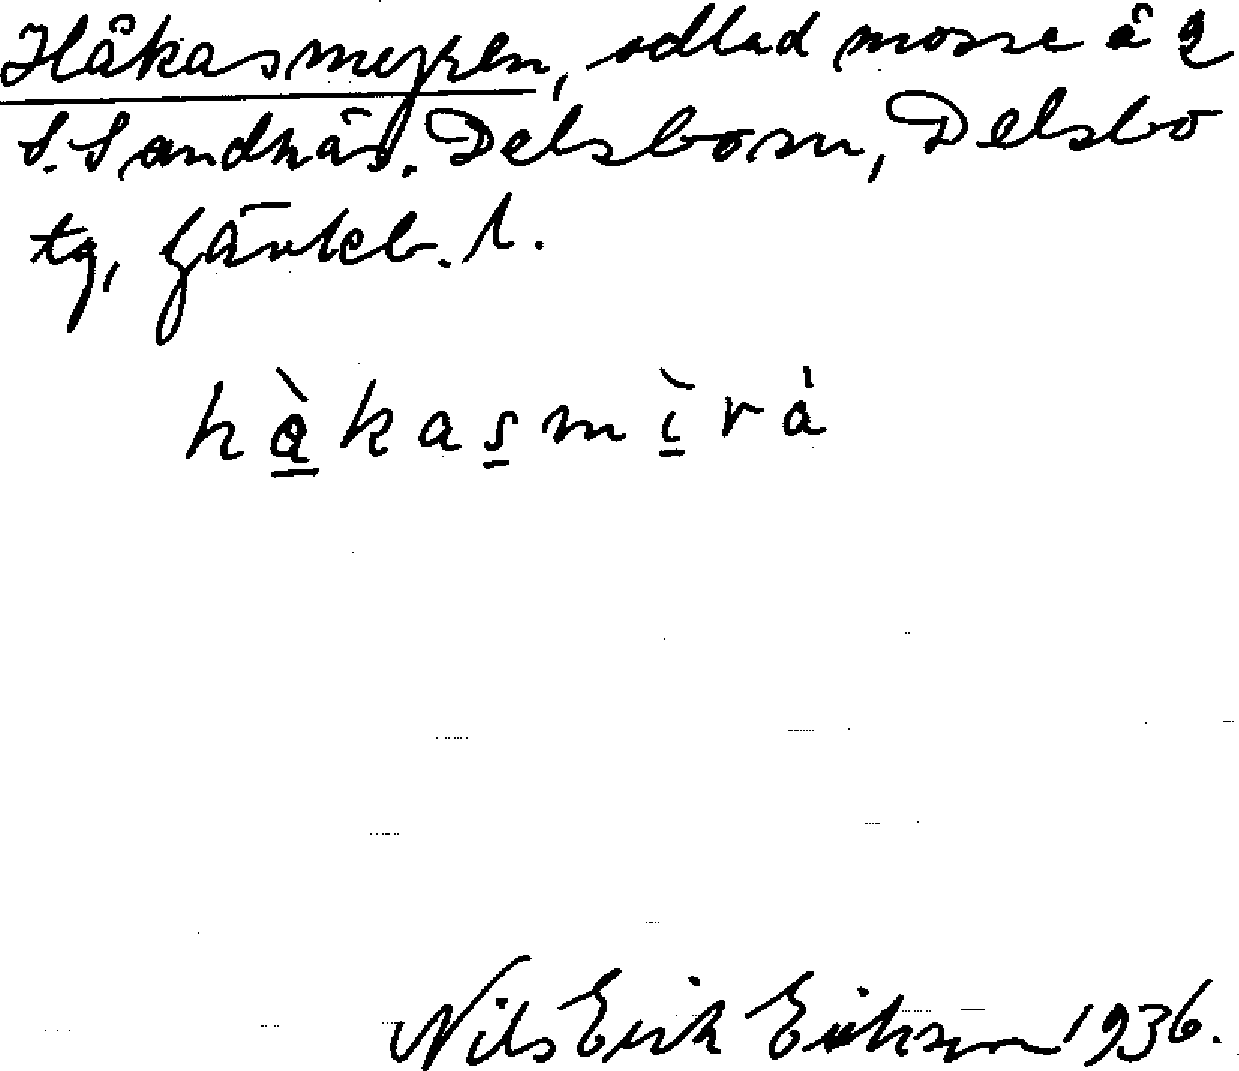 Håkasmyren, odlad mosse å g
S. Sandnäs. Delsbo sn, Delsbo
tg, Gävleb. l.
hàkasmìrà
Nils Erik Erikson 1936.